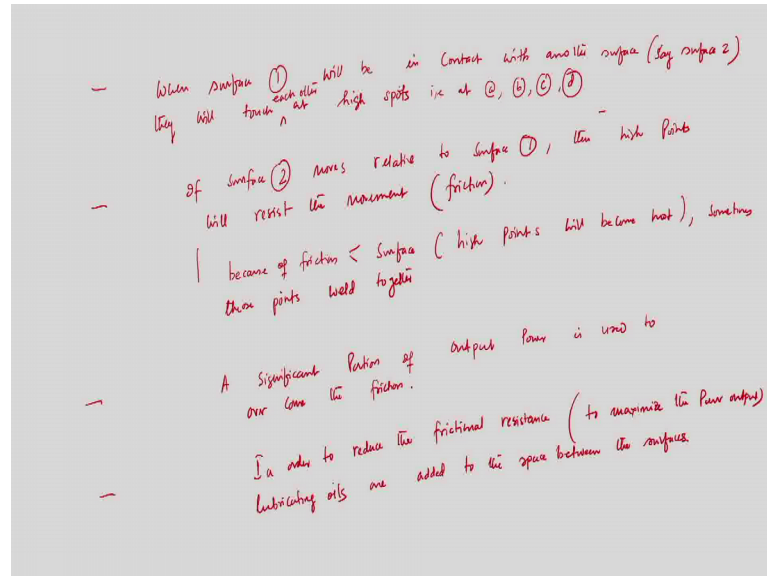 — When surface ① will be in contact with another surface (say surface 2)
they will touch each other at high spots i,e at ⓐ, ⓑ, ⓒ, ⓓ
— If surface ② moves relative to surface ①, then high Points
will resist the movement (friction).
because of friction < Surface (high points will become hot), sometimes
these points weld together
— A Significant Portion of output Power is used to
over come the friction.
— In order to reduce the frictional resistance (to maximize the Power output)
lubricating oils are added to the space between the surfaces.